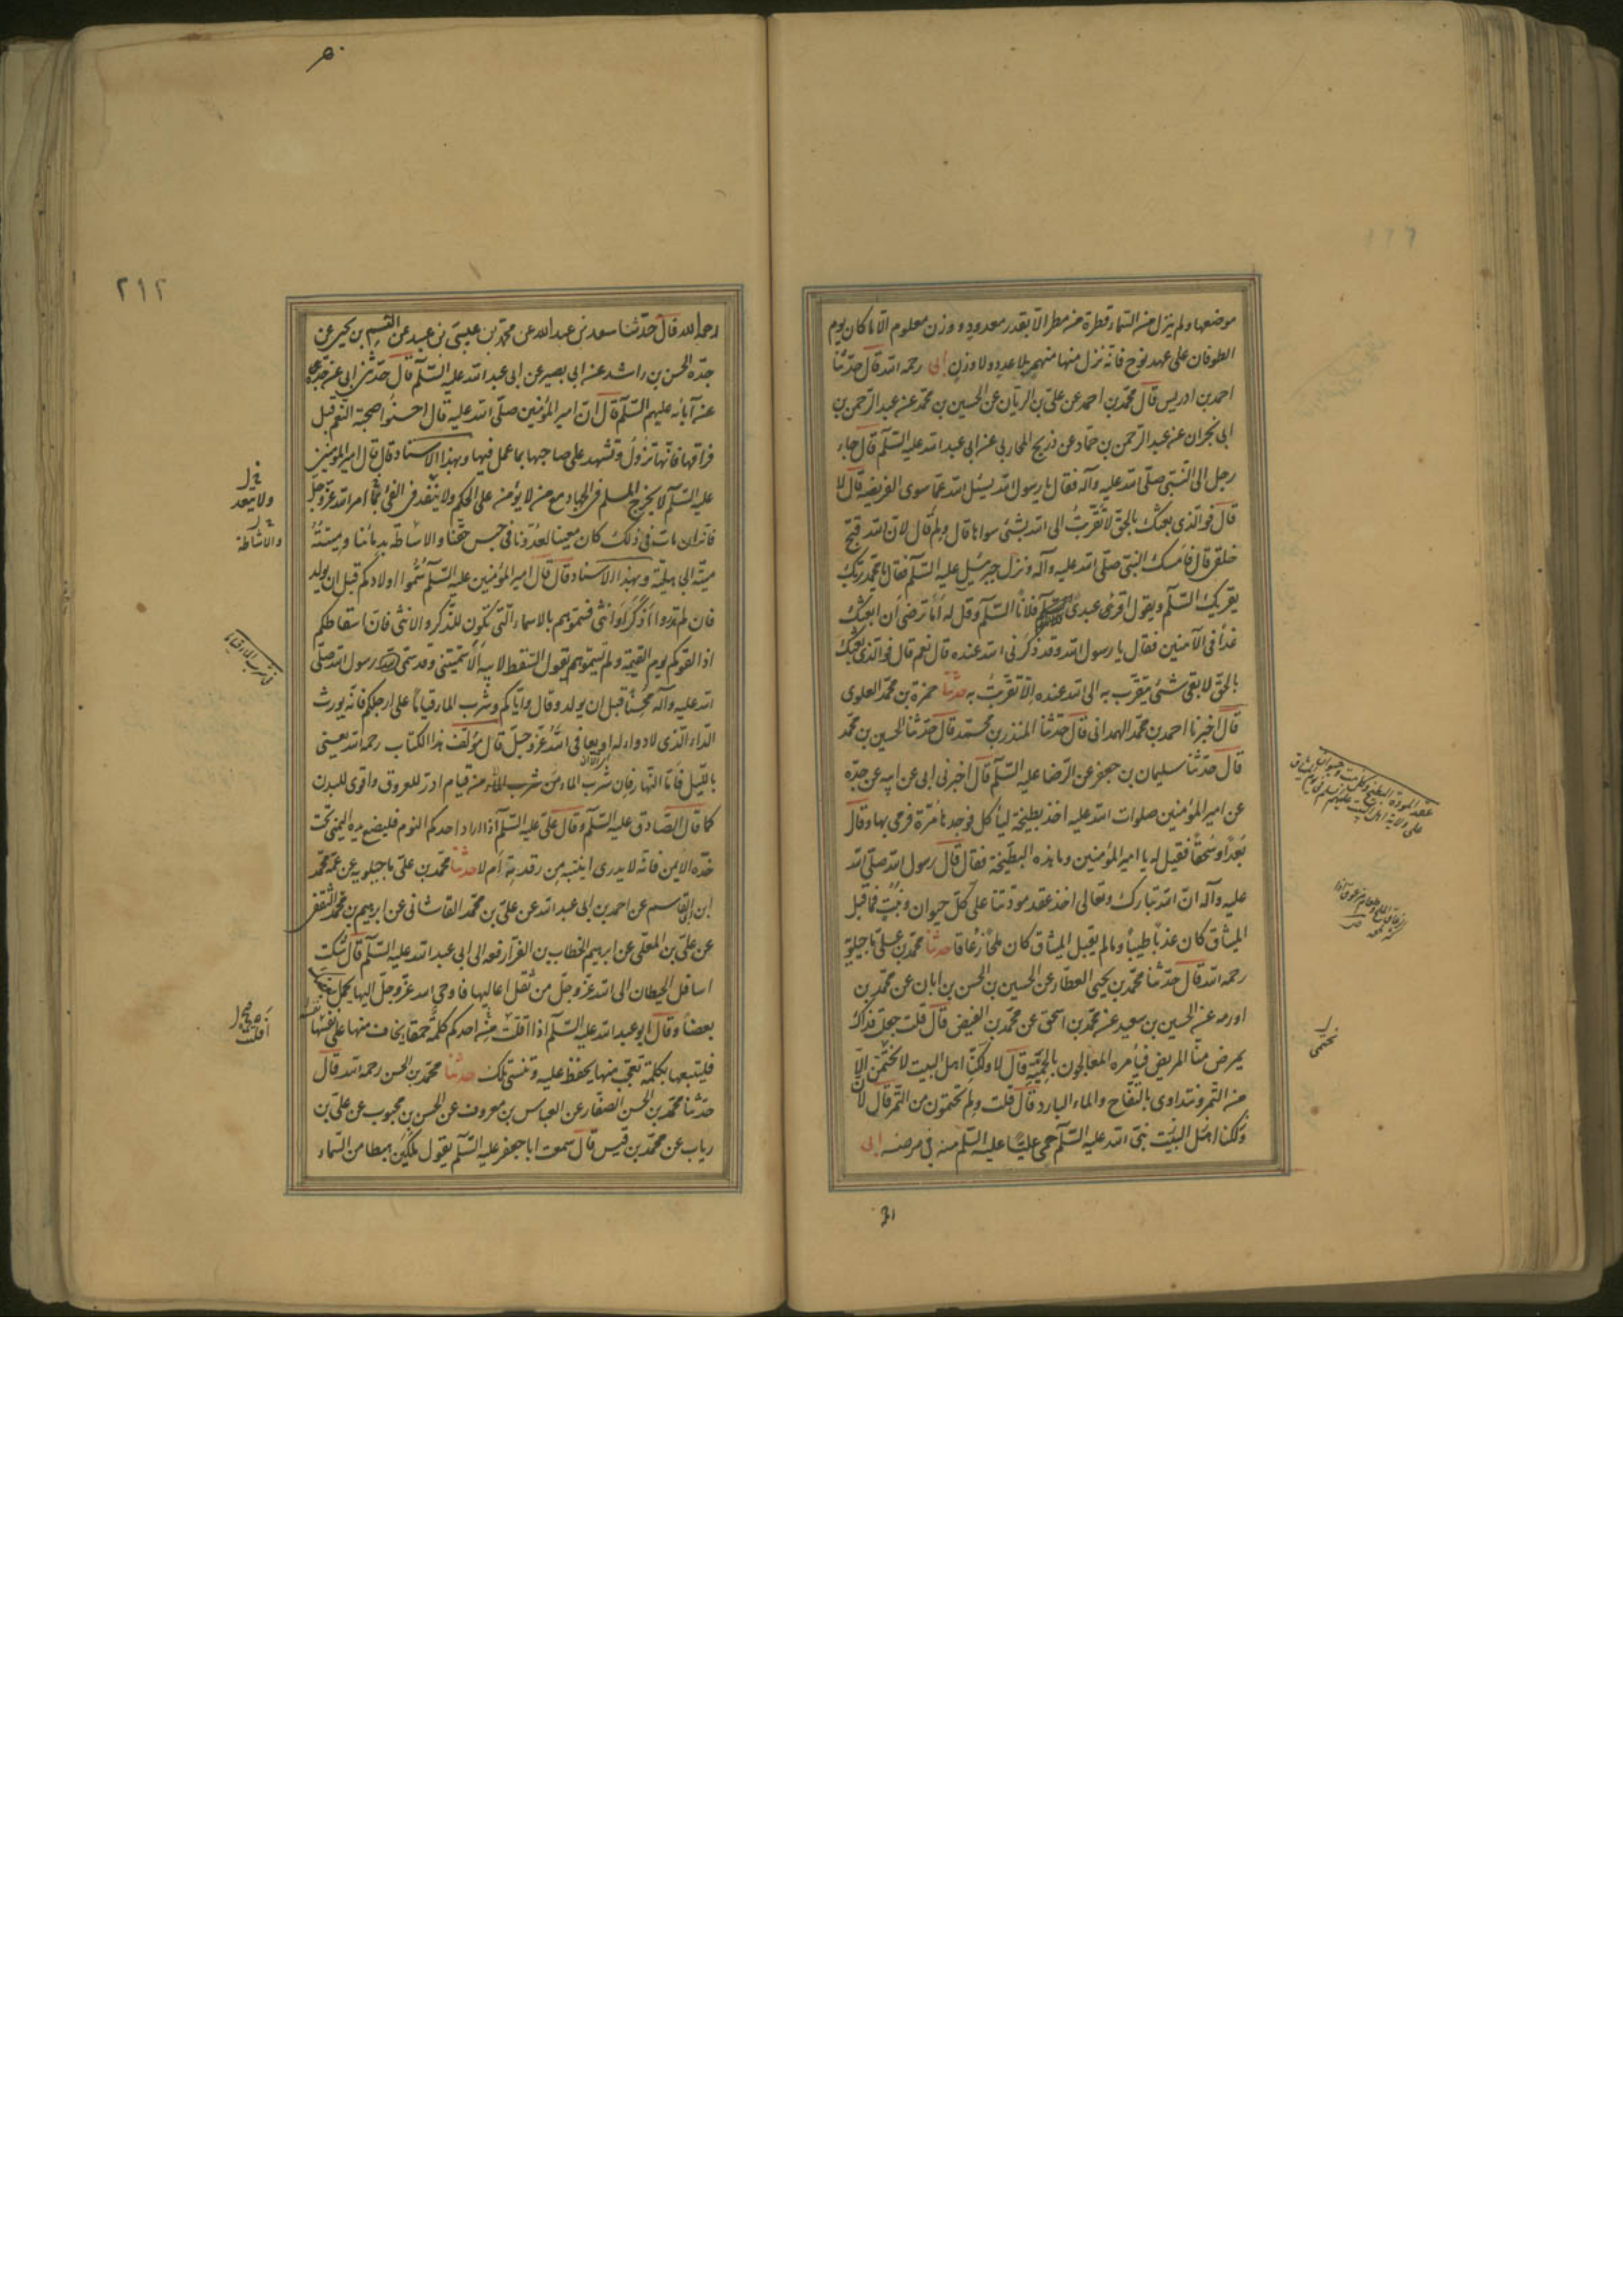 موضعها ولم ينزل من السماء قطرة من مطر الا بقدر معدود ووزن معلوم الا ما كان يوم
الطوفان على عهد نوح فانه نزل منها منهمر بلا عدد ولا وزن ابى رحمه الله قال حدثنا
احمد بن ادريس قال محمد بن احمد عن على بن الريان عن الحسين بن محمد عن عبد الرحمن بن
ابى نجران عن عبد الرحمن بن حماد عن ذريح المحاربى عن ابى عبد الله عليه السلم قال جاء
رجل الى النبى صلى الله عليه وآله فقال يا رسول الله يسئل الله عما سوى الفريضه قال لا
قال فوالذى بعثك بالحق لا تقربت الى الله بشئ سواها قال ولم قال لان الله قبح
خلقى قال فامسك النبى صلى الله عليه وآله ونزل جبرئيل عليه السلم فقال يا محمد ربك
يقريك السلم ويقول اقرئ عبدى فلانا السلم وقل له أما ترضى أن ابعثك
غدا فى الآمنين فقال يا رسول الله وقد ذكرنى الله عنده قال نعم قال فوالذى بعثك
بالحق لا بقى شئ يتقرب به الى الله عنده الا تقربت به حدثنا حمزة بن محمد العلوى
قال اخبرنا احمد بن محمد الهمدانى قال حدثنا المنذر بن محمد قال حدثنا الحسين بن محمد
قال حدثنا سليمان بن جعفر عن الرضا عليه السلم قال اخبرنى ابى عن ابيه عن جده
عن امير المؤمنين صلوات الله عليه اخذ بطيخة ليأكل فوجدها مرة فرمى بها وقال
بعدا وسحقا فقيل له يا امير المؤمنين وما هذه البطيخة فقال قال رسول الله صلى الله
عليه وآله ان الله تبارك وتعالى اخذ عقد مودتنا على كل حيوان ونبت فما قبل
الميثاق كان عذبا طيبا وما لم يقبل الميثاق كان ملحا زعاقا حدثنا محمد بن على ماجيلويه
رحمه الله قال حدثنا محمد بن يحيى العطار عن الحسين بن الحسن بن ابان عن محمد بن
اورمه عن الحسين بن سعيد عن محمد بن اسحق عن محمد بن الفيض قال قلت جعلت فداك
يمرض منا المريض فيأمره المعالجون بالحمية قال لا ولكنا اهل البيت لا نحتمى الا
من التمر ونتداوى بالتفاح والماء البارد قال قلت ولم تحتمون من التمر قال لان
ولكنا اهل البيت نبى الله عليه السلم حمى عليا عليه السلم منه فى مرضه ابى
عقد المودة
على ولاية اهل البيت عليهم
نحتمى
ابى
٢١٢
رحمه الله قال حدثنا سعد بن عبد الله عن محمد بن عيسى بن عبيد عن القسم بن يحيى عن
جده الحسن بن راشد عن ابى بصير عن ابى عبد الله عليه السلم قال حدثنى ابى عن جدى
عن آبائه عليهم السلم قال ان امير المؤمنين صلى الله عليه قال احسنوا صحبة النعم قبل
فراقها فانها تزول وتشهد على صاحبها بما عمل فيها وبهذا الاسناد قال قال امير المؤمنين
عليه السلم لا يخرج المسلم فى الجهاد مع من لا يؤمن على الحكم ولا ينفذ فى الفئ امر الله عز وجل
فانه ان مات فى ذلك كان معينا لعدونا فى حبس حقنا والاشاطة بدمائنا وميتته
ميتة الجاهلية وبهذا الاسناد قال قال امير المؤمنين عليه السلم سموا اولادكم قبل ان يولد
فان لم تدروا اذكرا او انثى فسموهم بالاسماء التى تكون للذكر والانثى فان اسقاطكم
اذا لقوكم يوم القيمة ولم تسموهم يقول السقط لابيه الا سميتنى وقد سمى رسول الله صلى
الله عليه وآله محسنا قبل ان يولد وقال واياكم وشرب الماء قياما على ارجلكم فانه يورث
الداء الذى لا دواء له او يعافى الله عز وجل قال مؤلف هذا الكتاب رحمه الله يعنى
بالليل فاما النهار فان شرب الماء من قيام ادر للعروق واقوى للبدن
كما قال الصادق عليه السلم وقال على عليه السلم اذا اراد احدكم النوم فليضع يده اليمنى تحت
خده الايمن فانه لا يدرى اينتبه من رقدته ام لا حدثنا محمد بن على ماجيلويه عن عمه محمد
ابن ابى القاسم عن احمد بن ابى عبد الله عن على بن محمد القاشانى عن ابرهيم بن محمد الثقفى
عن على بن المعلى عن ابرهيم الخطاب بن الفرآ رفعه الى ابى عبد الله عليه السلم قال شكت
اسافل الحيطان الى الله عز وجل من ثقل اعاليها فاوحى الله عز وجل اليها يحمل بعضها
بعضا وقال ابو عبد الله عليه السلم اذا افلت من احدكم كلمة حمقاء يخاف منها على نفسها
فليتبعها بكلمة تعجب منها يحفظ عليه وتنسى تلك حدثنا محمد بن الحسن رحمه الله قال
حدثنا محمد بن الحسن الصفار عن العباس بن معروف عن الحسن بن محبوب عن على بن
رياب عن محمد بن قيس قال سمعت ابا جعفر عليه السلم يقول ملكين هبطا من السماء
والاشاطة
افلتت